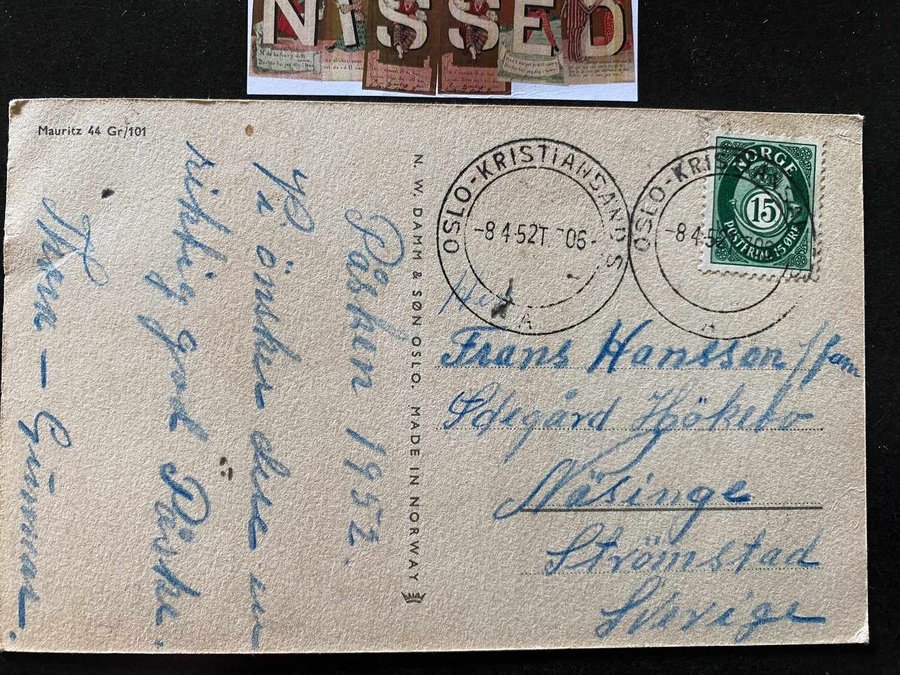 NISSED
Mauritz 44 Gr/101
Påsken 1952.
Vi önsker dere en
riktig god Påske.
Them - Gunnar.
N. W. DAMM & SØN OSLO. MADE IN NORWAY
OSLO-KRISTIANSAND S
-8 4.52T. 06-
A
OSLO-KRISTIANSAND S
-8 4.52 06
A
NORGE
15
POSTFRIM. 15 ØRE
Frans Hansson / fam
Ödegård Hökero
Näsinge
Strömstad
Sverige